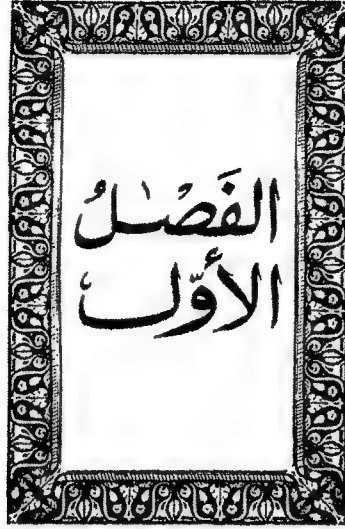 الفَصْلُ
الأوّل